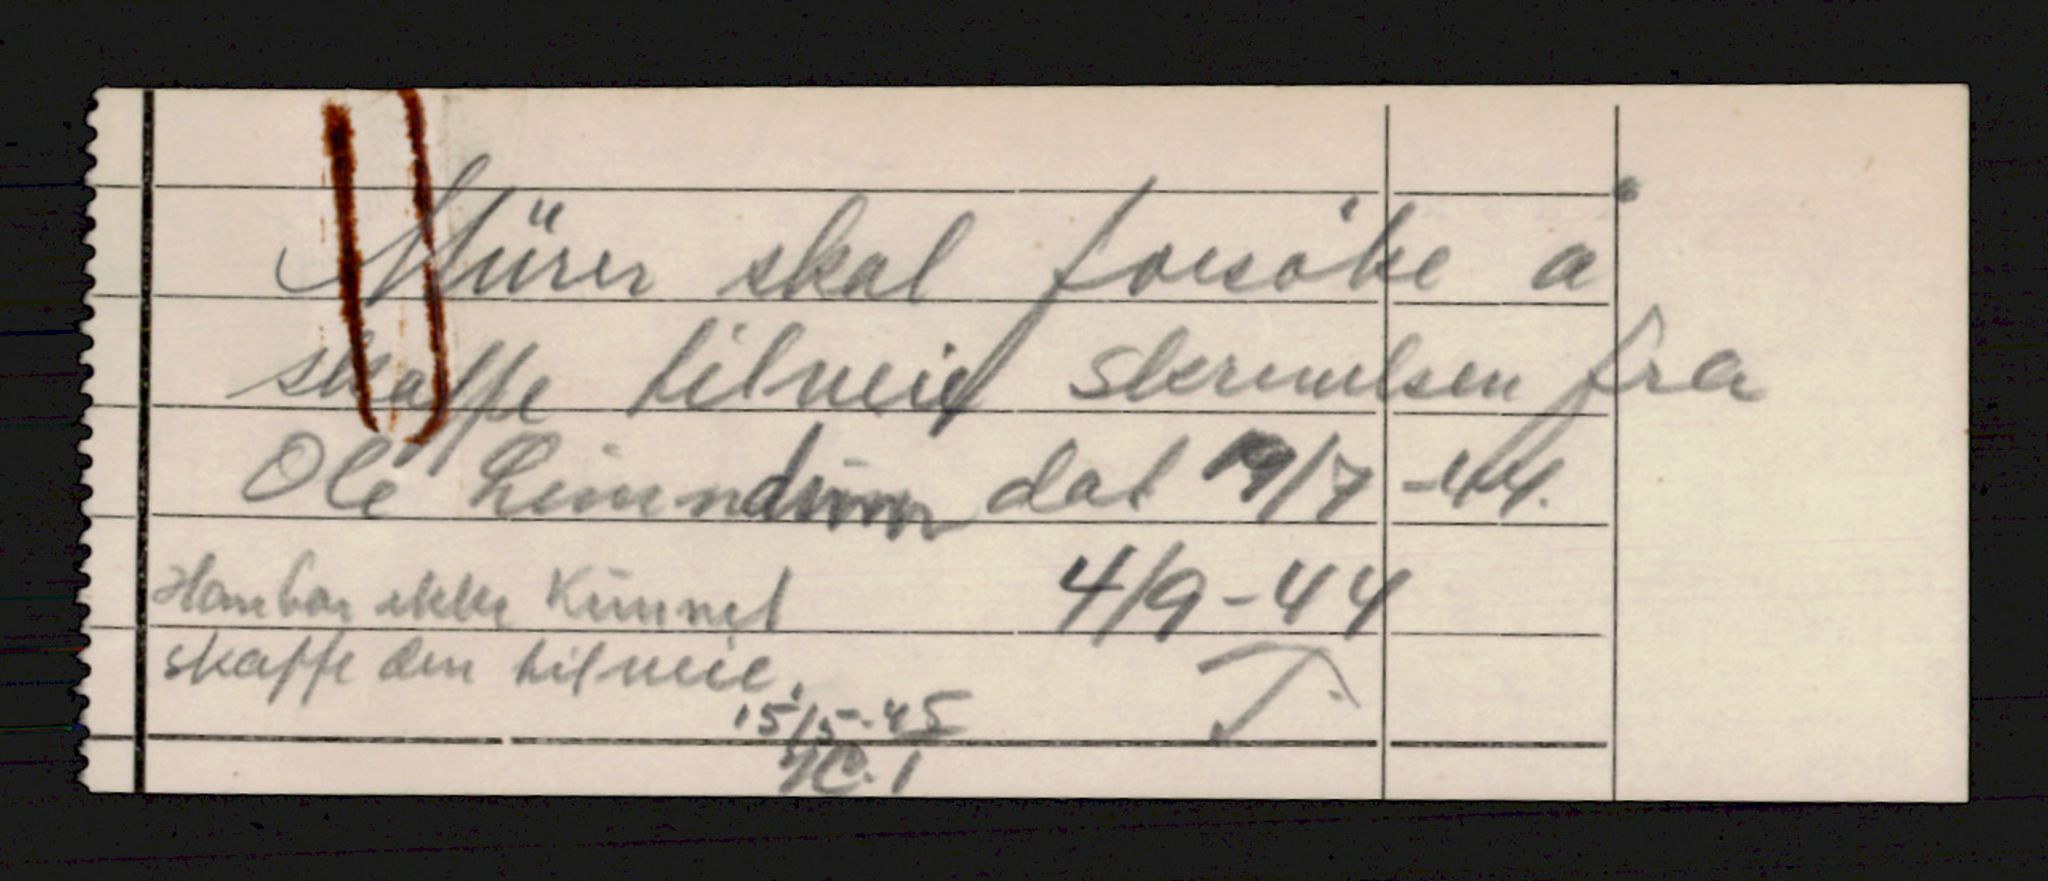 Mürer skal forsöke å
skaffe tilveie skrivelsen fra
Ole dat 19/7 -44.
Han har ikke Kunnet 4/9-44
skaffe den tilveie.
15/5-45